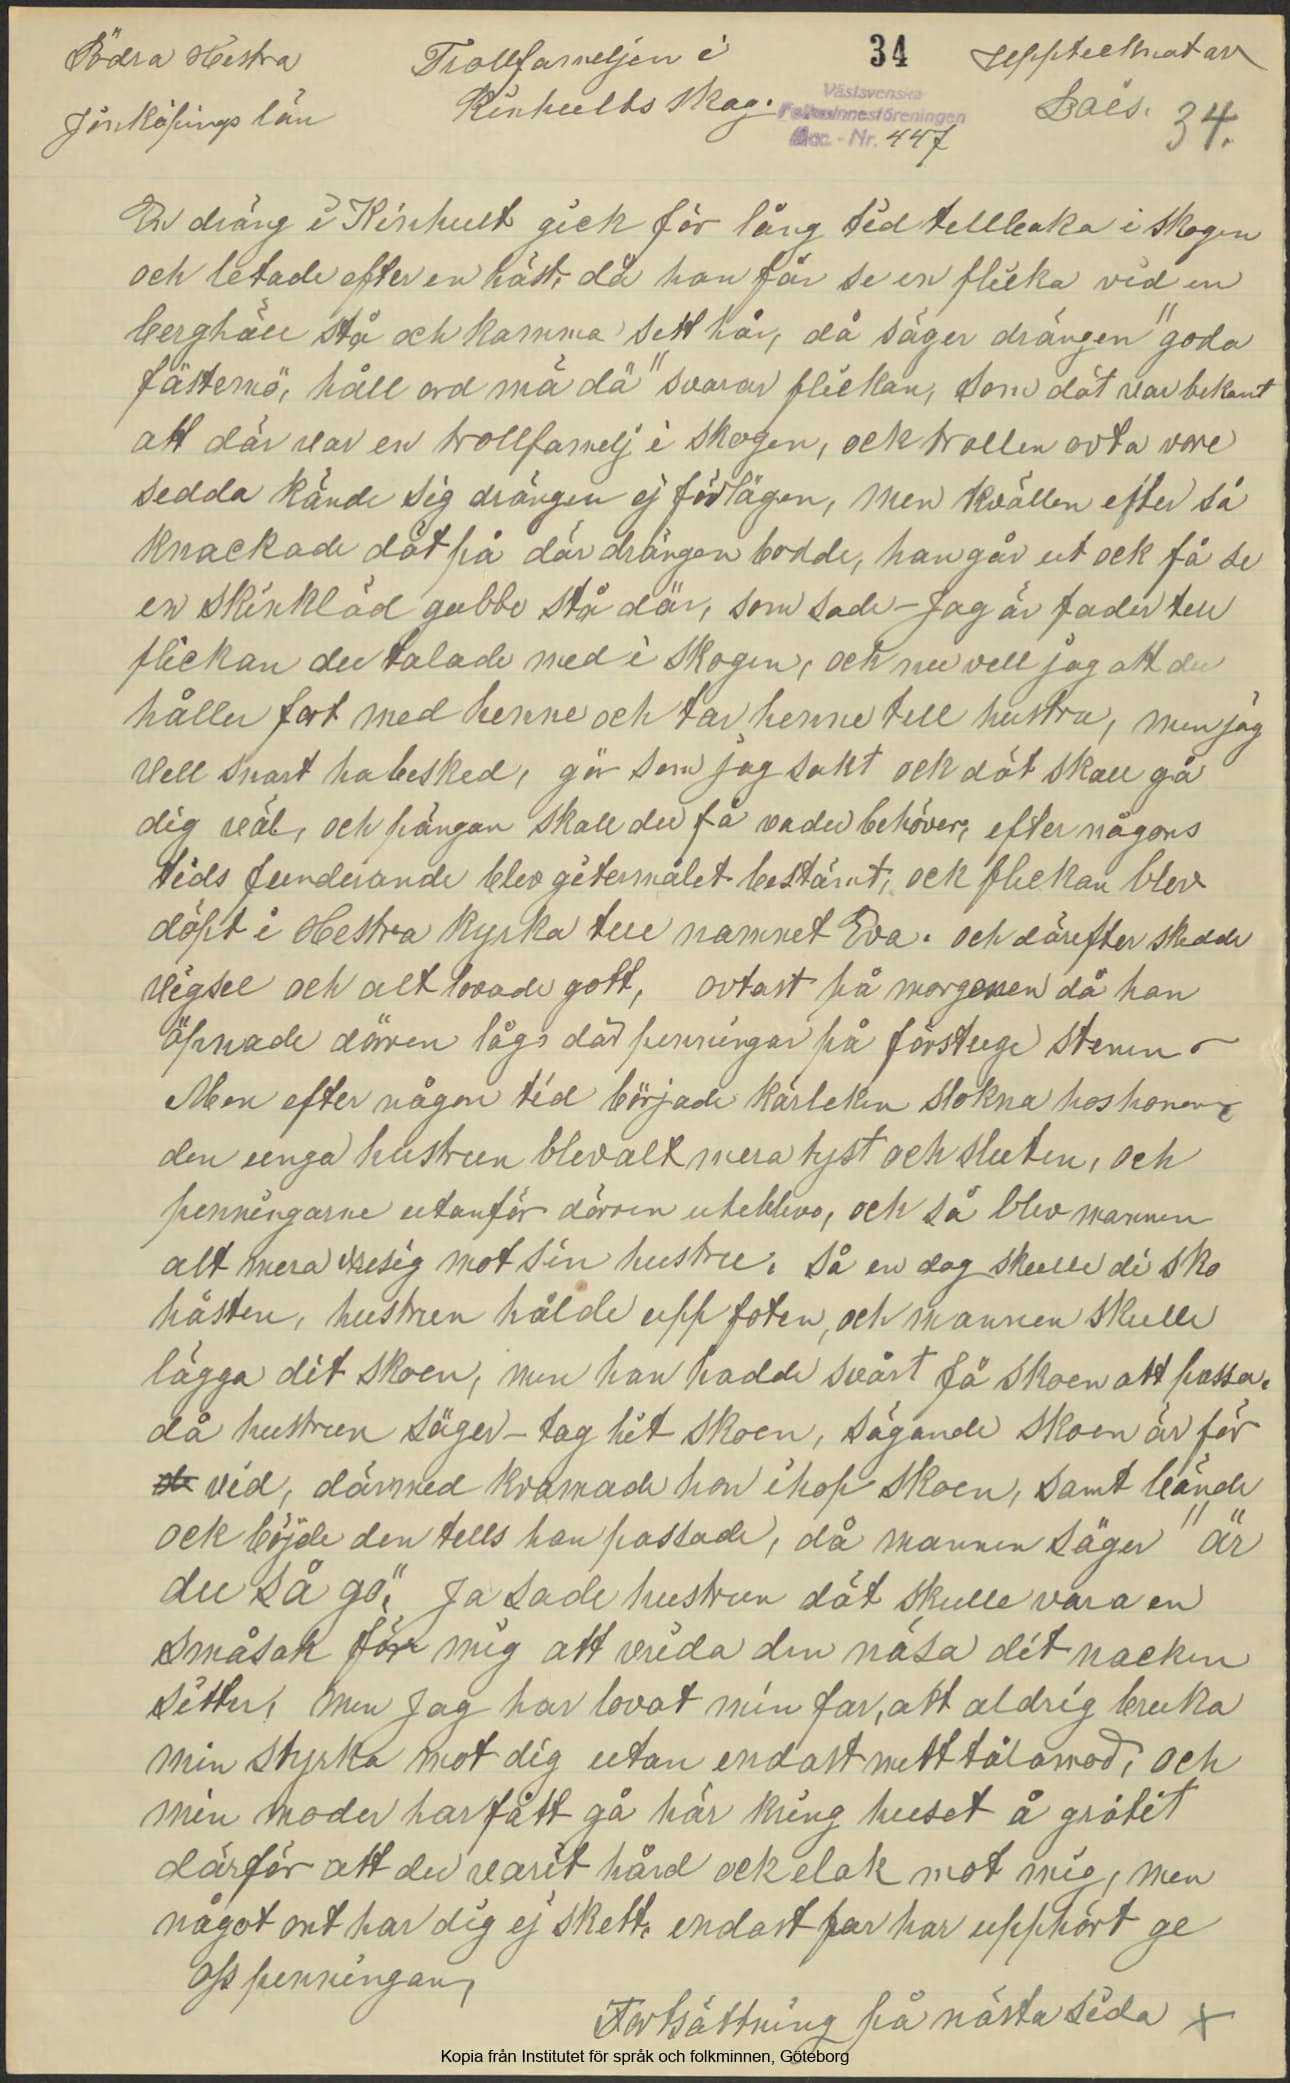 Södra Hestra
Jönköpings län
Trollfameljen i
Kinhults skog.
34
Västsvenska
Folkminnesföreningen
Acc. - Nr. 447
Uppteknat av
Boës.
34.
En dräng i Kinhult gick för lång tid tellbaka i skogen
och letade efter en häst, då han får se en flicka vid en
berghäll stå och kamma sett hår, då säger drängen "goda
fästemö, håll ord må dä" svarar flickan, som dät var bekant
att där var en trollfamelj i skogen, ock trollen ovta vore
sedda kände sig drängen ej förlägen, men kvällen efter så
knackade dät på där drängen bodde, han går ut ock få se
en skinkläd gubbe stå där, som sade - Jag är fader tell
flickan du talade med i skogen, och nu vell jag att du
håller fort med henne och tar henne tell hustru, men jag
vell snart ha besked, gör som jag sakt ock dät skall gå
dig väl, och pängan skall du få va du behöver, efter någons
tids funderande blev gitermålet bestämt, ock flickan blev
döpt i Hestra kyrka tell namnet Eva. och därefter skedde
vigsel och alt lovade gott, ovtast på morgonen då han
öpnade dörren låg där penningar på förstuge stenen -
Men efter någon tid började kärleken slokna hos honom
den unga hustrun blev alt mera tyst och sluten, och
penningarne utanför dörren uteblevo, och så blev mannen
alt mera vresig mot sin hustru. Så en dag skulle di sko
hästen, hustrun hålde upp foten, och mannen skulle
lägga dit skoen, men han hadde svårt få skoen att passa.
då hustrun säger - tag hit skoen, sägande skoen är för
vid, därmed kramade hon ihop skoen, samt bände
ock böjde den tells han passade, då mannen säger "är
du så go". Ja sade hustrun dät skulle vara en
småsak för mig att vrida din näsa dit nacken
sitter, men Jag har lovat min far, att aldrig bruka
min styrka mot dig utan endast mitt tålamod, och
min moder har fått gå här kring huset å grötit
därför att du varit hård ock elak mot mig, men
något ont har dig ej skett, endast far har upphört ge
oss penningan,
Fortsättning på nästa sida +
Kopia från Institutet för språk och folkminnen, Göteborg